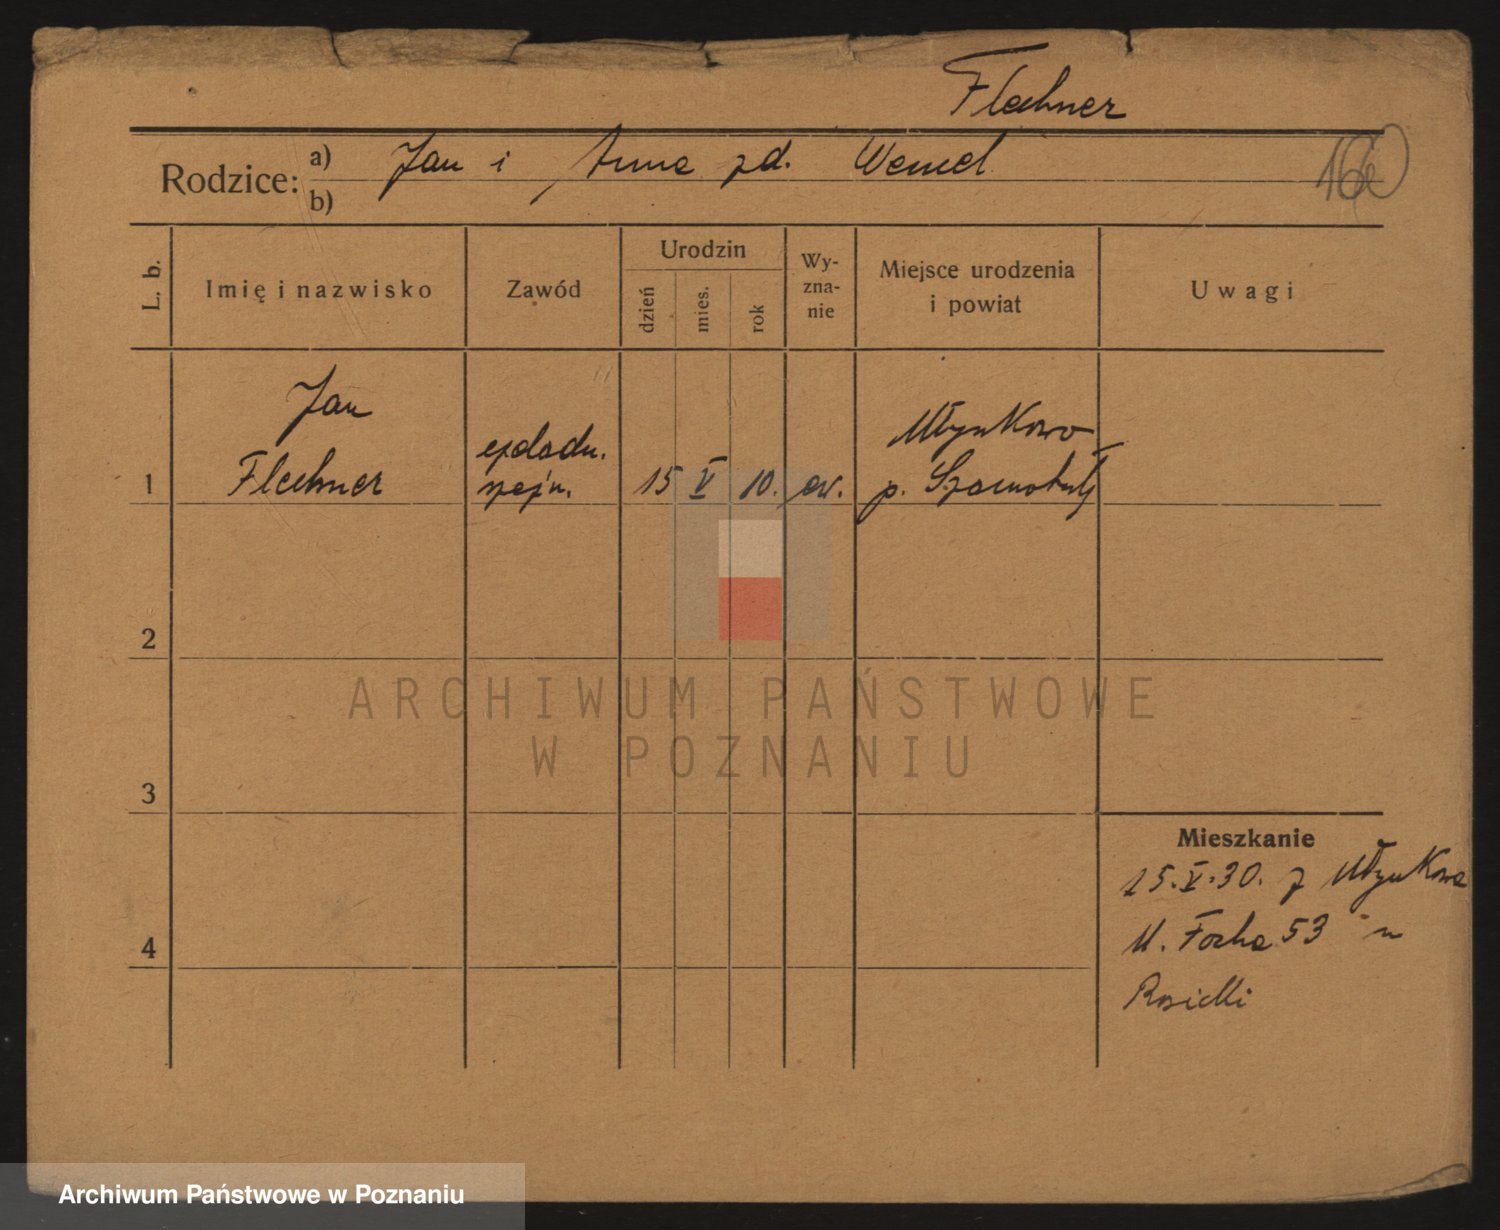 Flechner
Rodzice: a) Jan i Anna zd. Wenel
b)
L. b. Imię i nazwisko Zawód Urodzin dzień mies. rok Wy-zna-nie Miejsce urodzenia i powiat Uwagi
Jan
Młynkowo
1 Flechner 15 V 10. ew. p. Szamotuły
2
ARCHIWUM PAŃSTWOWE
W POZNANIU
3
Mieszkanie
15.V.30. z Młynkowa
4
M. Focha 53 m
Rosicki
Archiwum Państwowe w Poznaniu